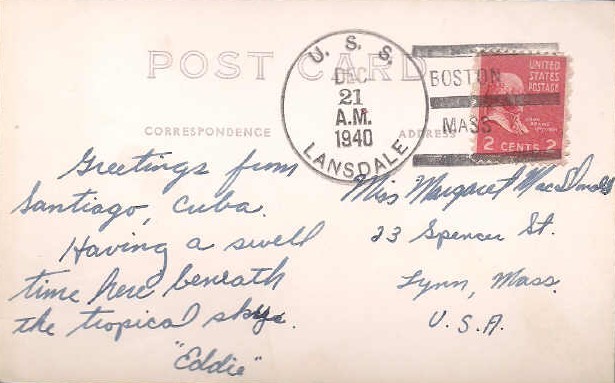 POST CARD
U. S. S.
LANSDALE
DEC
21
A.M.
1940
BOSTON
MASS
UNITED
STATES
POSTAGE
2 CENTS 2
CORRESPONDENCE
ADDRESS
Greetings from
Santiago, Cuba.
Having a swell
time here beneath
the tropical skys.
"Eddie"
Miss Margaret MacDonald
23 Spencer St.
Lynn, Mass.
U.S.A.